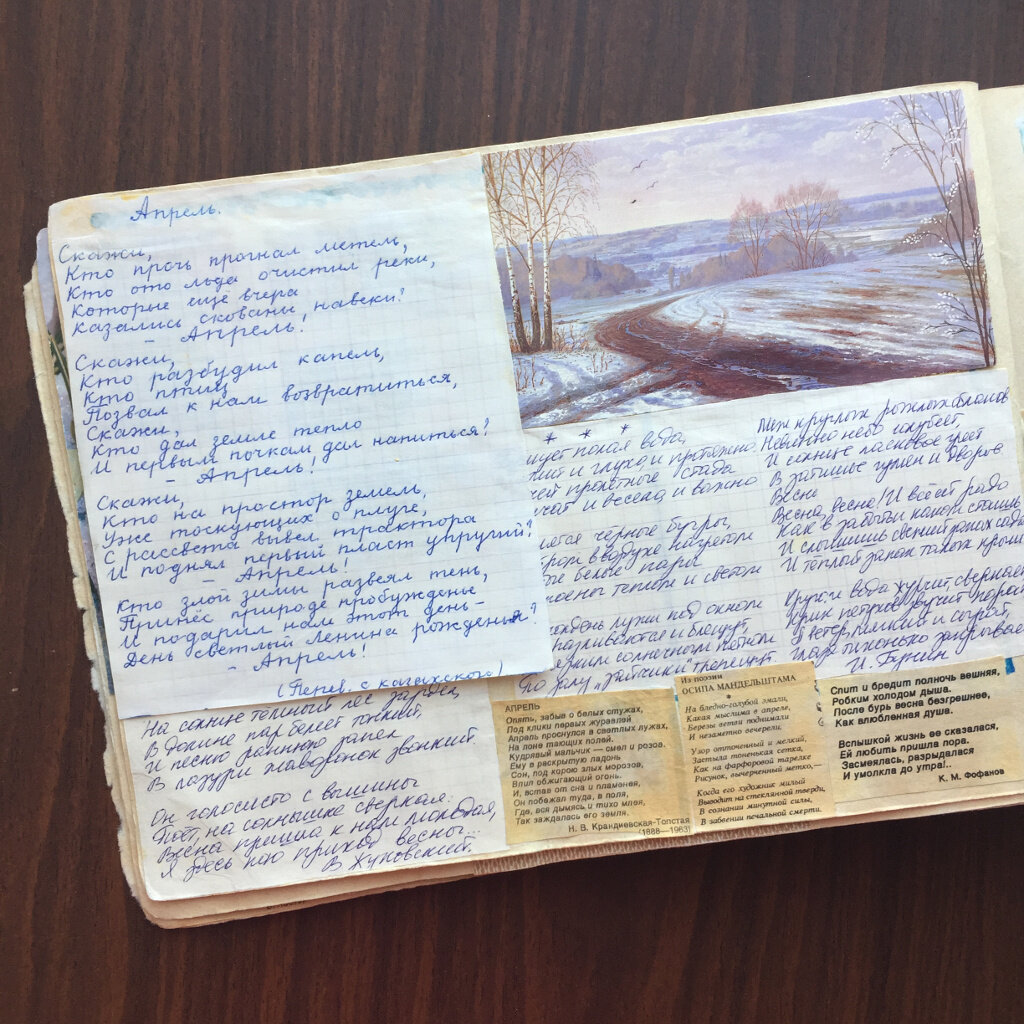 Апрель.
Скажи,
Кто прочь прогнал метель,
Кто ото льда очистил реки,
Которые ещё вчера
Казались скованы навеки?
- Апрель!
Скажи,
Кто разбудил капель,
Кто птиц
Позвал к нам возвратиться,
Скажи,
Кто дал земле тепло
И первым почкам дал напиться?
- Апрель!
Скажи,
Кто на простор земель,
Уже тоскующих о плуге,
С рассвета вывел трактора
И поднял первый пласт упругий?
- Апрель!
Кто злой зимы развеял тень,
Принёс природе пробужденье
И подарил нам этот день -
День светлый Ленина рожденья?
- Апрель!
(Перев. с казахского)
На солнце темный лес зардел,
В долине пар белеет тонкий,
И песню раннюю запел
В лазури жаворонок звонкий.
Он голосисто с вышины
Поёт, на солнышке сверкая:
Весна пришла к нам молодая,
Я здесь пою приход весны...
В Жуковский.
* * *
полая вода,
и глухо и протяжно
пролётные стада
и весело и важно
чёрные бугры,
в воздухе нагретом
белые пары
теплом и светом
лужи под окном
и блещут,
ярким солнечным теплом
По залу „зайчики" трепещут
Меж круглых рыхлых облаков
Невинно небо голубеет,
И солнце ласковое греет
В затишье гумен и дворов
Весна
Весна, весна! И всё ей радо
Как в забытьи каком стоишь
И слышишь свежий запах сада
И теплый запах талых крыш
Кругом вода журчит, сверкает
Крик петухов звучит порой
А ветер, мягкий и сырой,
Глаза тихонько закрывает
И. Бунин
АПРЕЛЬ
Опять, забыв о белых стужах,
Под клики первых журавлей
Апрель проснулся в светлых лужах,
На лоне тающих полей.
Кудрявый мальчик — смел и розов.
Ему в раскрытую ладонь
Сон, под корою злых морозов,
Влил обжигающий огонь.
И, встав от сна и пламенея,
Он побежал туда, в поля,
Где, вся дымясь и тихо млея,
Так заждалась его земля.
Н. В. Крандиевская-Толстая
(1888—1963)
Из поэзии
ОСИПА МАНДЕЛЬШТАМА
*
На бледно-голубой эмали,
Какая мыслима в апреле,
Березы ветви поднимали
И незаметно вечерели.
Узор отточенный и мелкий,
Застыла тоненькая сетка,
Как на фарфоровой тарелке
Рисунок, вычерченный метко,—
Когда его художник милый
Выводит на стеклянной тверди,
В сознании минутной силы,
В забвении печальной смерти.
Спит и бредит полночь вешняя,
Робким холодом дыша.
После бурь весна безгрешнее,
Как влюбленная душа.
Вспышкой жизнь ее сказалась,
Ей любить пришла пора.
Засмеялась, разрыдалася
И умолкла до утра!..
К. М. Фофанов